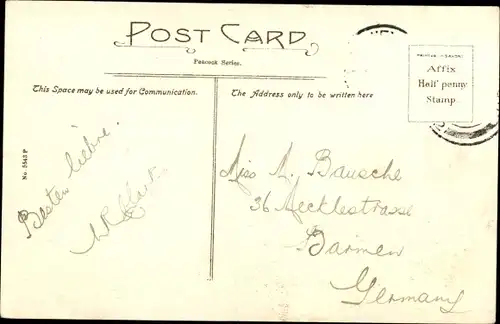 POST CARD
Peacock Series.
This Space may be used for Communication.
The Address only to be written here
Affix
Half penny
Stamp.
No. 5543 P
Besten
Miss A. Bausche
36 Mecklestrasse
Barmen
Germany